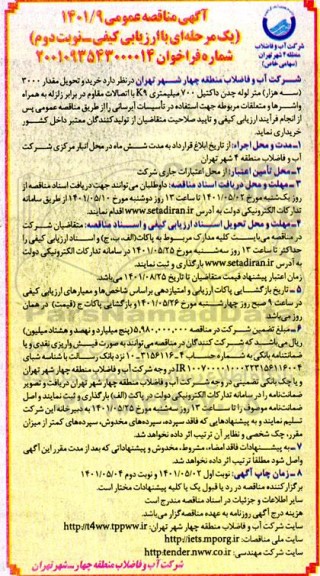 آگهی مناقصه عمومی ۱۴۰۱/۹
(یک مرحله‌ای با ارزیابی کیفی ـ نوبت دوم)
شماره فراخوان ۲۰۰۱۰۹۳۵۴۳۰۰۰۰۱۴
شرکت آب و فاضلاب
منطقه ۴ شهر تهران
(سهامی خاص)
شرکت آب و فاضلاب منطقه چهار شهر تهران در نظر دارد خرید و تحویل مقدار ۳۰۰۰
(سه هزار) متر لوله چدن داکتیل ۷۰۰ میلیمتری K9 با اتصالات مقاوم در برابر زلزله به همراه
واشرها و متعلقات مربوطه جهت استفاده در تأسیسات آبرسانی را از طریق مناقصه عمومی پس
از انجام فرآیند ارزیابی کیفی و تایید صلاحیت متقاضیان از تولیدکنندگان معتبر داخل کشور
خریداری نماید.
۱ـ مدت و محل اجراء: از تاریخ ابلاغ قرارداد به مدت شش ماه در محل انبار مرکزی شرکت
آب و فاضلاب منطقه ۴ شهر تهران
۲ـ محل تأمین اعتبار: از محل اعتبارات جاری شرکت
۳ـ مهلت و محل دریافت اسناد مناقصه: داوطلبان می‌توانند جهت دریافت اسناد مناقصه از
روز یکشنبه مورخ ۱۴۰۱/۰۵/۰۲ تا ساعت ۱۳ روز دوشنبه مورخ ۱۴۰۱/۰۵/۱۰ از طریق سامانه
تدارکات الکترونیکی دولت به آدرس www.setadiran.ir اقدام نمایند.
۴ـ مهلت و محل تحویل اسناد ارزیابی کیفی و اسناد مناقصه: متقاضیان شرکت
در مناقصه می‌بایست کلیه مدارک مربوط به پاکات (الف، ب، ج) و اسناد ارزیابی کیفی را
حداکثر تا ساعت ۱۳ روز سه‌شنبه مورخ ۱۴۰۱/۰۵/۲۵ در سامانه تدارکات الکترونیکی دولت
به آدرس www.setadiran.ir بارگذاری و ثبت نمایند.
زمان اعتبار پیشنهاد قیمت متقاضیان تا تاریخ ۱۴۰۱/۰۸/۲۵ می‌باشد.
۵ـ تاریخ بازگشایی پاکات ارزیابی و امتیازدهی براساس شاخص‌ها و معیارهای ارزیابی کیفی
در ساعت ۹ صبح روز چهارشنبه مورخ ۱۴۰۱/۰۵/۲۶ و بازگشایی پاکات ج (قیمت) در همان
روز می‌باشد.
۶ـ مبلغ تضمین شرکت در مناقصه ۵,۹۸۰,۰۰۰,۰۰۰ (پنج میلیارد و نهصد و هشتاد میلیون)
ریال می‌باشد که شرکت کنندگان در مناقصه می‌توانند به صورت فیش واریزی نقدی و یا
ضمانتنامه بانکی به شماره حساب ۴ـ۳۱۵۶۱۱۶ـ۱۰ نزد بانک رسالت با شناسه شبای
در وجه شرکت آب و فاضلاب منطقه چهار شهر تهران
و یا چک بانکی تضمینی در وجه شرکت آب و فاضلاب منطقه چهار شهر تهران دریافت و تصویر
ضمانتنامه را در سامانه تدارکات الکترونیکی دولت در پاکت (الف) بارگذاری و ثبت نمایند و اصل
ضمانتنامه موصوف را تا ساعت ۱۳ روز سه‌شنبه مورخ ۱۴۰۱/۰۵/۲۵ به دبیرخانه این شرکت
تسلیم نمایند و به پیشنهادهایی که فاقد سپرده، سپرده‌های مخدوش، سپرده‌های کمتر از میزان
مقرر، چک شخصی و نظایر آن ترتیب اثر داده نخواهد شد.
۷ـ به پیشنهادات فاقد امضاء، مشروط، مخدوش و پیشنهاداتی که بعد از مدت مقرر این آگهی
واصل شود مطلقاً ترتیب اثر داده نخواهد شد.
۸ـ زمان چاپ آگهی: نوبت اول ۱۴۰۱/۰۵/۰۲ و نوبت دوم ۱۴۰۱/۰۵/۰۴
برگزارکننده مناقصه در رد یا قبول یک یا کلیه پیشنهادات مختار است.
سایر اطلاعات و جزئیات در اسناد مناقصه مندرج است
هزینه درج آگهی روزنامه به عهده مناقصه‌گزار می‌باشد.
سایت شرکت آب و فاضلاب منطقه چهار شهر تهران: http://t4ww.tppww.ir
سایت ملی مناقصات: http://iets.mporg.ir
سایت شرکت مهندسی: http:tender.nww.co.ir
شرکت آب و فاضلاب منطقه چهار ـ شهر تهران